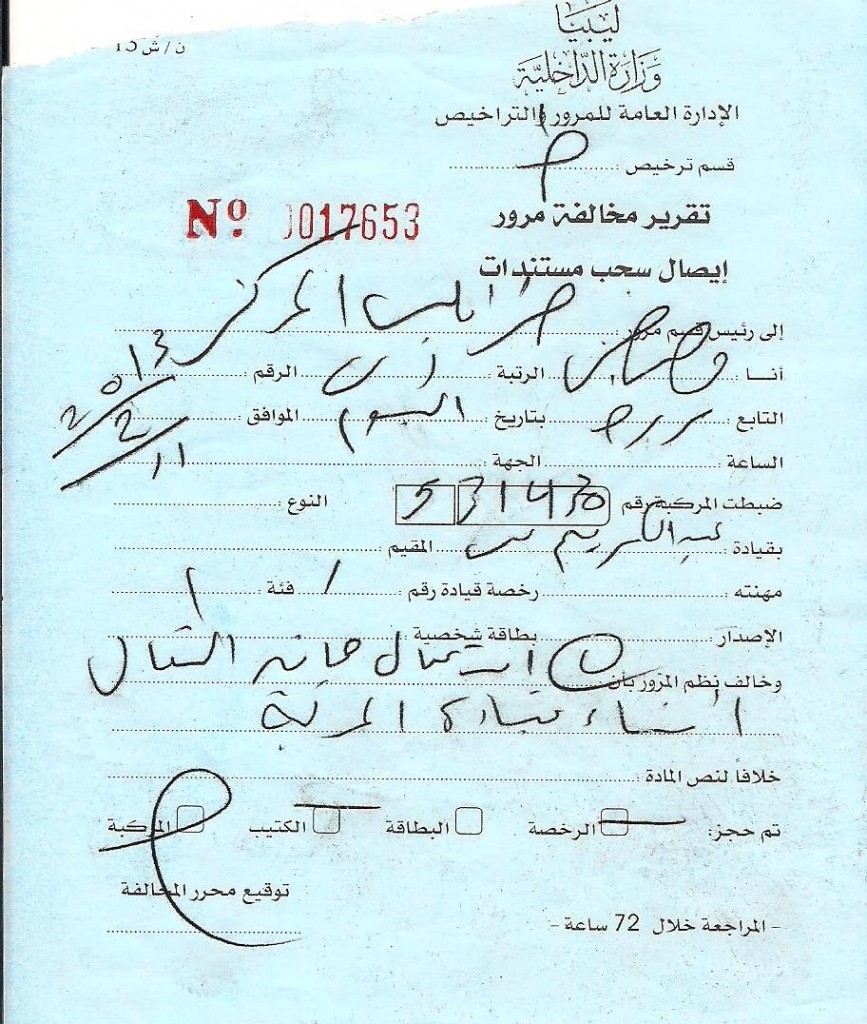 ليبيا
ن/ش 15
وزارة الداخلية
الإدارة العامة للمرور والتراخيص
قسم ترخيص :
تقرير مخالفة مرور
Nº 0017653
إيصال سحب مستندات
إلى رئيس قسم مرور طرابلس المركز
أنـا : الرتبة : الرقم :
التابع : بتاريخ اليوم الموافق : 11/2/2013
الساعة : الجهة :
ضبطت المركبة رقم 5 31430 النوع :
بقيادة : عبد الكريم المقيم :
مهنته : رخصة قيادة رقم : / فئة :
الإصدار : بطاقة شخصية :
وخالف نظم المرور بأن استعمال هاتف النقال
أثناء قيادة المركبة
خلافا لنص المادة :
تم حجز: الرخصة البطاقة الكتيب المركبة
توقيع محرر المخالفة
- المراجعة خلال 72 ساعة -